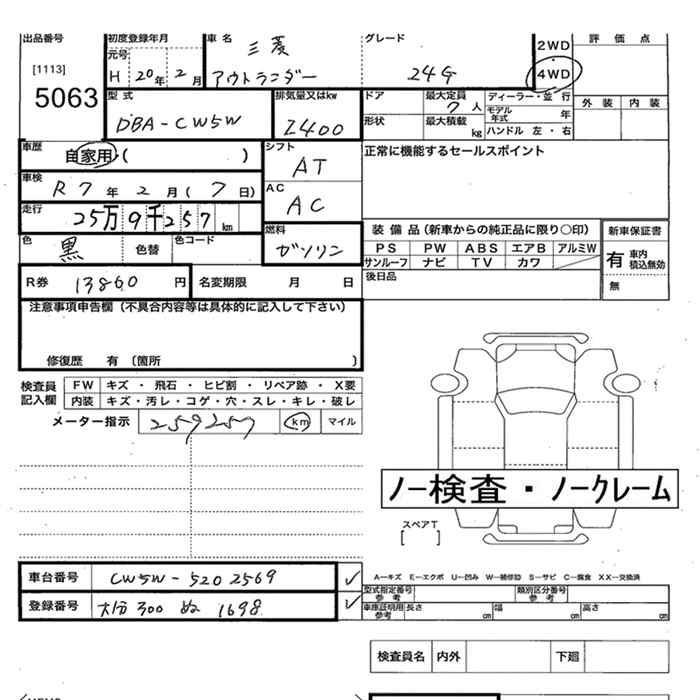 出品番号 初度登録年月 車名 グレード 評価点
[1113] 元号 三菱 2WD
5063 H 20年 2月 アウトランダー 24G 4WD
型式 排気量又はkw ドア 最大定員 7人 ディーラー・並行 外装 内装
DBA-CW5W 2400 形状 最大積載 kg モデル年式 年
ハンドル 左・右
車歴 自家用・( ) シフト AT 正常に機能するセールスポイント
車検 R7年 2月(7日) AC AC
走行 25万9千257km
色 黒 色替 色コード 燃料 ガソリン 装備品(新車からの純正品に限り○印) 新車保証書
PS PW ABS エアB アルミW 有 車内積込無効
サンルーフ ナビ TV カワ
R券 13860円 名変期限 月 日 後日品 無
注意事項申告欄(不具合内容等は具体的に記入して下さい)
修復歴 有(箇所 )
検査員記入欄 FW キズ・飛石・ヒビ割・リペア跡・X要
内装 キズ・汚レ・コゲ・穴・スレ・キレ・破レ
メーター指示 259257 km マイル
ノー検査・ノークレーム
スペアT
[ ]
車台番号 CW5W-5202569 ✓
A-キズ E-エクボ U-凹み W-補修跡 S-サビ C-腐食 XX-交換済
型式指定番号参考 類別区分番号参考
登録番号 大分 300 ぬ 1698 ✓
車庫証明用参考 長さ cm 幅 cm 高さ cm
検査員名 内外 下廻